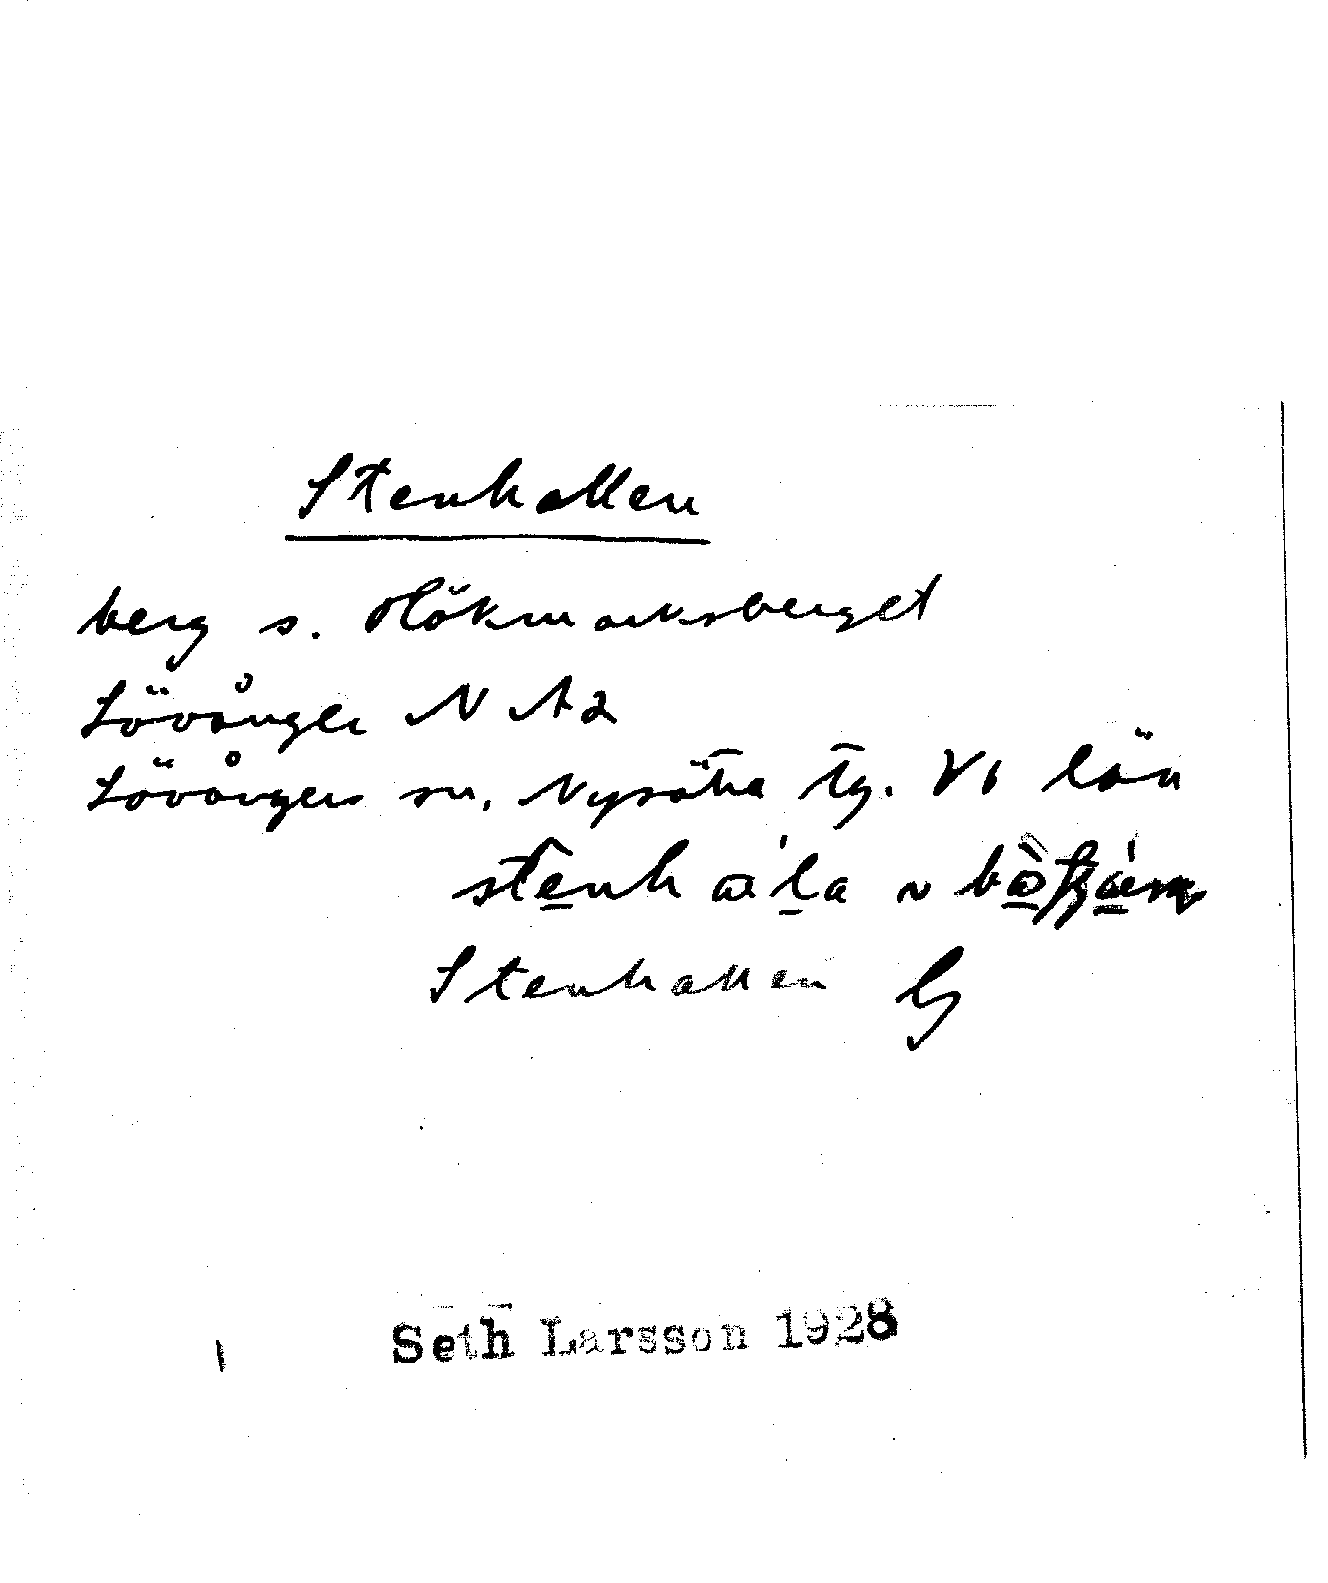 Stenhallen
berg s. Hökmarksberget
Lövånger N A2
Lövångers sn. Nysätra tg. Vb län
stenhala
Stenhallen G
Seth Larsson 1928